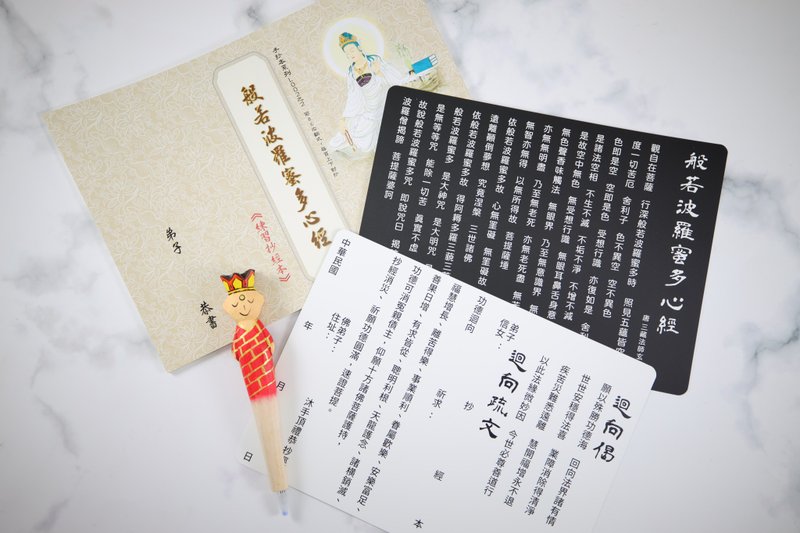 般若波羅蜜多心經
《練習抄經本》
弟子
恭書
般若波羅蜜多心經
觀自在菩薩 行深般若波羅蜜多時 照見五蘊皆空
度一切苦厄 舍利子 色不異空 空不異色
色即是空 空即是色 受想行識 亦復如是 舍利
是諸法空相 不生不滅 不垢不淨 不增不減
是故空中無色 無受想行識 無眼耳鼻舌身意
無色聲香味觸法 無眼界 乃至無意識界
亦無無明盡 乃至無老死 亦無老死盡 無苦
無智亦無得 以無所得故 菩提薩埵
依般若波羅蜜多故 心無罣礙 無罣礙故
遠離顛倒夢想 究竟涅槃 三世諸佛
依般若波羅蜜多故 得阿耨多羅三藐三
般若波羅蜜多 是大神咒 是大明咒
是無等等咒 能除一切苦 真實不虛
故說般若波羅蜜多咒 即說咒曰 揭
波羅僧揭諦 菩提薩婆訶
迴向偈
願以殊勝功德海 回向法界諸有情
世世安穩得法喜 業障消除得清淨
疾苦災難悉遠離 慧開福增永不退
以此法緣微妙因 今世必尊善道行
迴向疏文
弟子
信女：
抄 經 本
功德迴向 祈求：
福慧增長、離苦得樂、事業順利、眷屬歡樂、安樂富足、
善果日增、有求皆從、聰明利根、天龍護念、諸橫銷滅、
功德可消冤親債主，仰願十方諸佛菩薩護持，
抄經消災、祈願功德圓滿，速證菩提。
佛弟子：
住址：
沐手頂禮恭抄經
中華民國 年 月 日